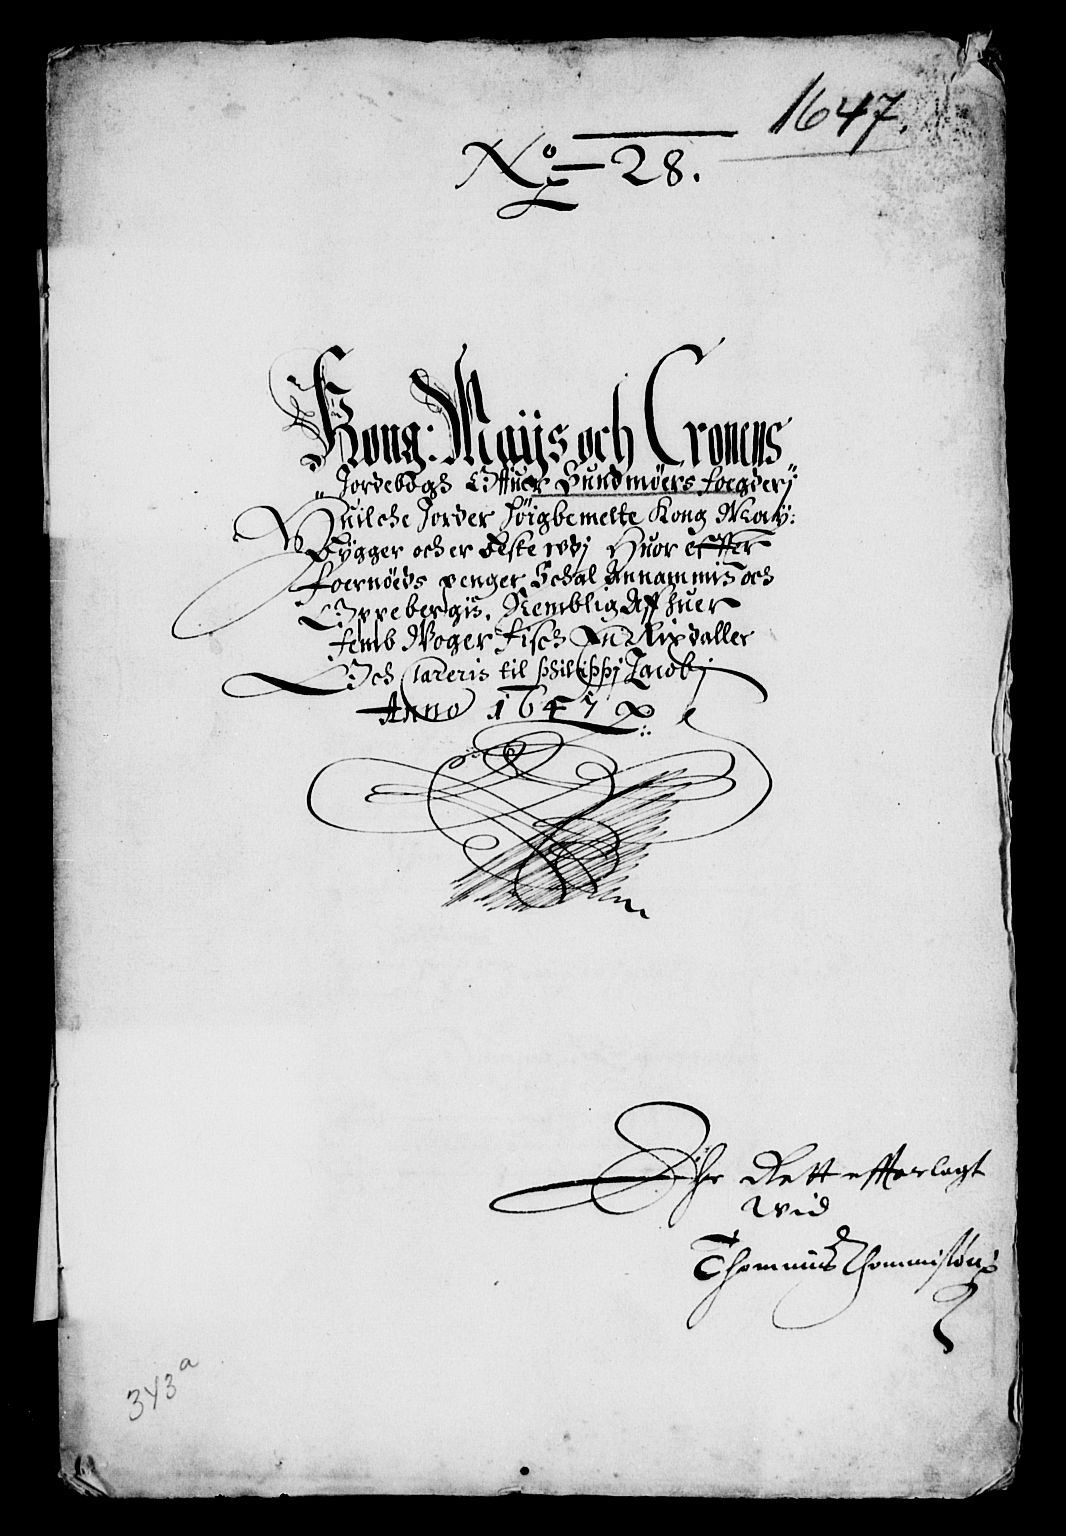 1647.
No 28.
Kong: Mayis och Cronens
Jordebogh Offuer Sundmøers foegderj
Huilche Jorder høigbemelte Kong May:
Bygger och er beste Huor effter
foernøeds penger Schal Annammis och
Oppebergis, Nemblig Aff huer
femb Woger fisch En Rixdaller
Och Clareris til Philippj Jacobj
Anno 1647
Ehr Rett effterlagt
wid
Thommis Thommisøn
343a